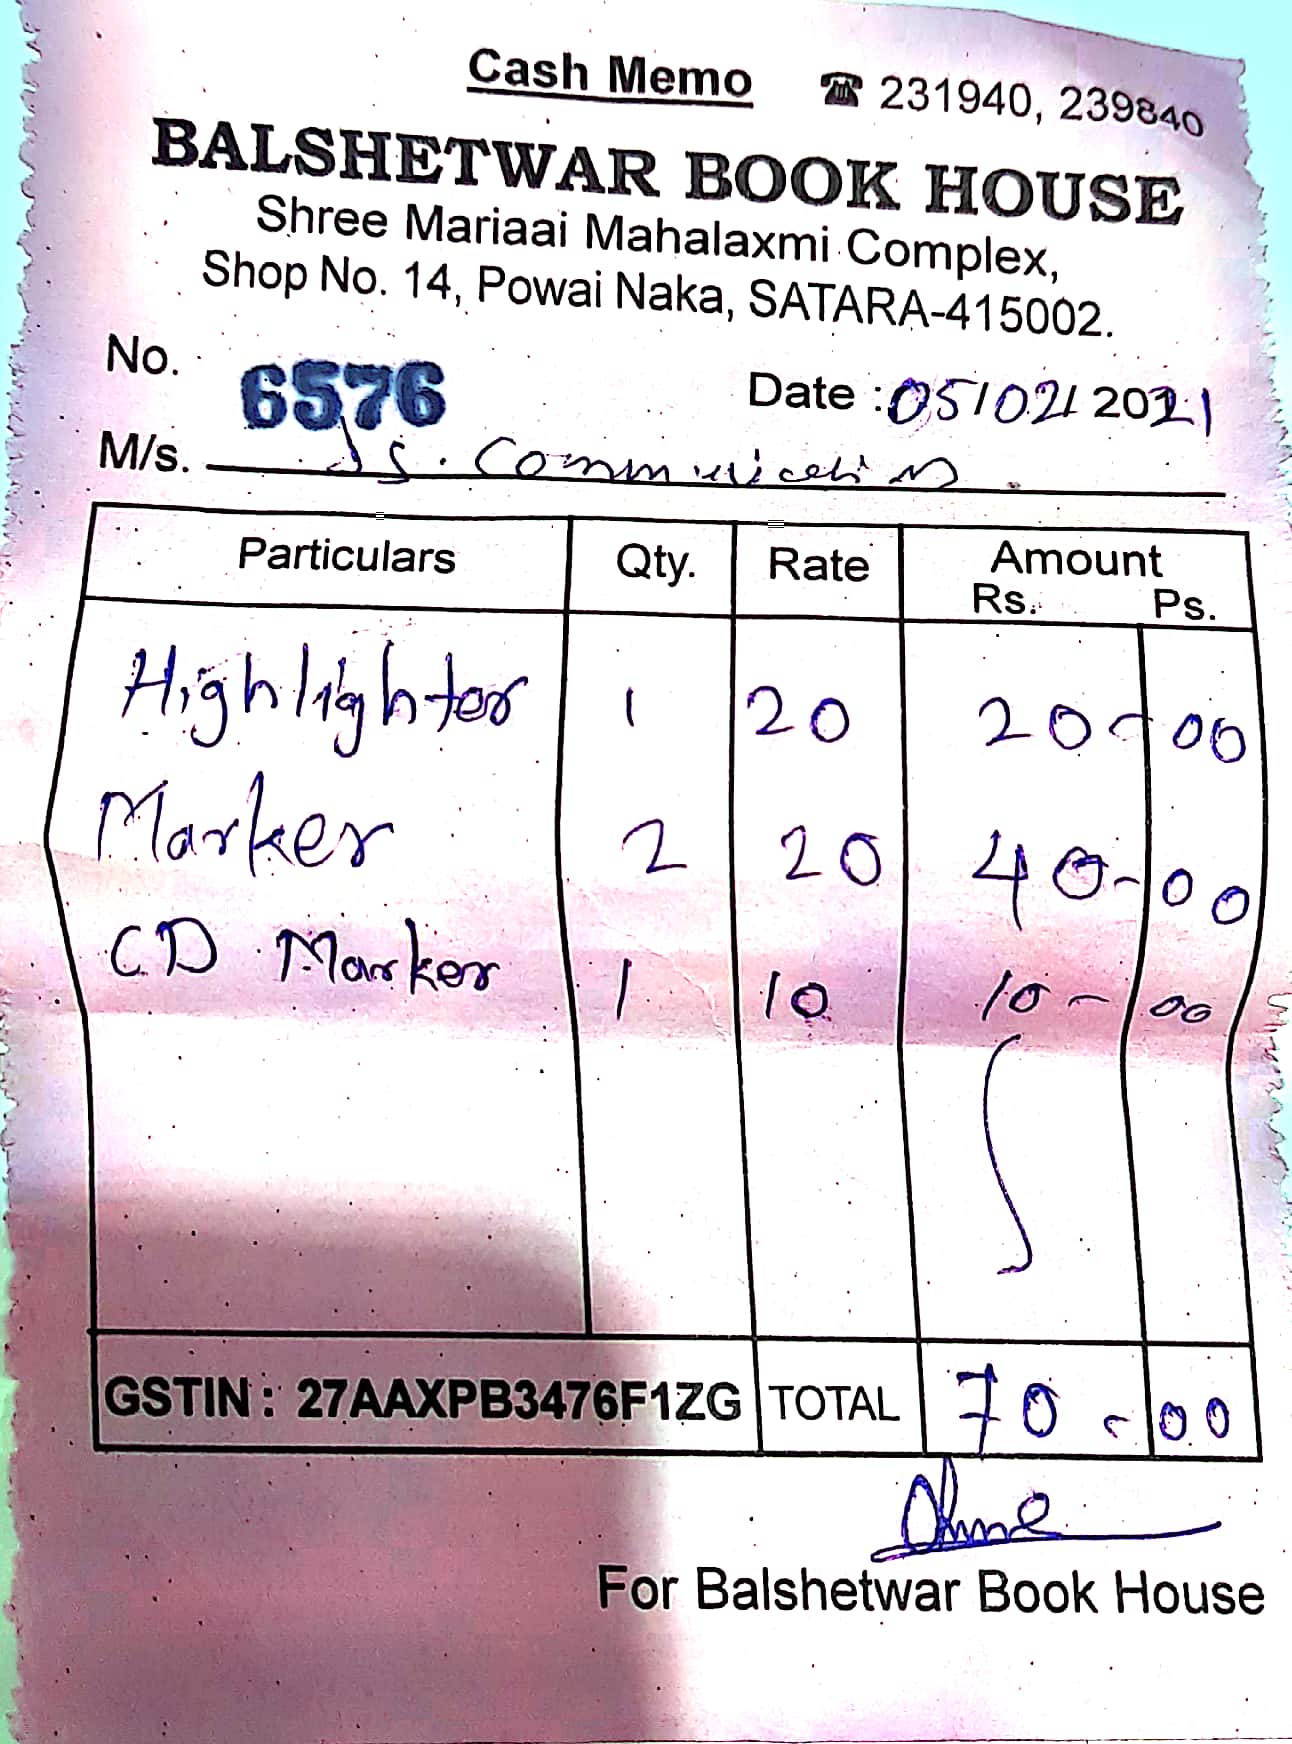 Cash Memo ☎ 231940, 239840
BALSHETWAR BOOK HOUSE
Shree Mariaai Mahalaxmi Complex,
Shop No. 14, Powai Naka, SATARA-415002.
No. 6576 Date : 05/02/2021
M/s. JS. Communication.
Particulars Qty. Rate Amount
Rs. Ps.
Highlighter 1 20 20-00
Marker 2 20 40-00
CD Marker 1 10 10-00
GSTIN : 27AAXPB3476F1ZG TOTAL 70-00
For Balshetwar Book House